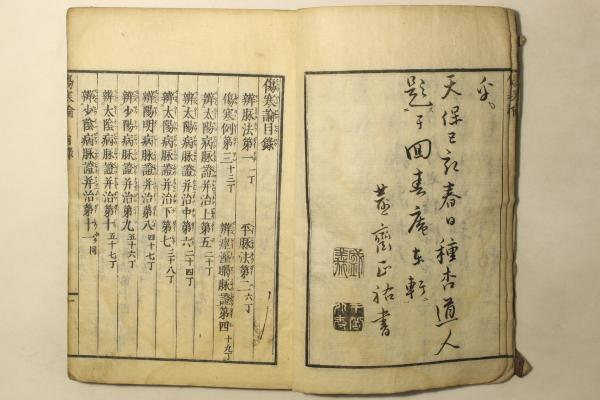 天保己亥春日種杏道人
題于回春庵東軒
齋正祐書
傷寒論目錄
辨脉法第一 一丁 平脉法第二 六丁
傷寒例第三 十三丁 辨痓濕暍脉證第四 十九丁
辨太陽病脉證并治上第五 二十丁
辨太陽病脉證并治中第六 二十四丁
辨太陽病脉證并治下第七 三十八丁
辨陽明病脉證并治第八 四十七丁
辨少陽病脉證并治第九 五十六丁
辨太陰病脉證并治第十 五十七丁
辨少陰病脉證并治第十一
傷寒論 目錄